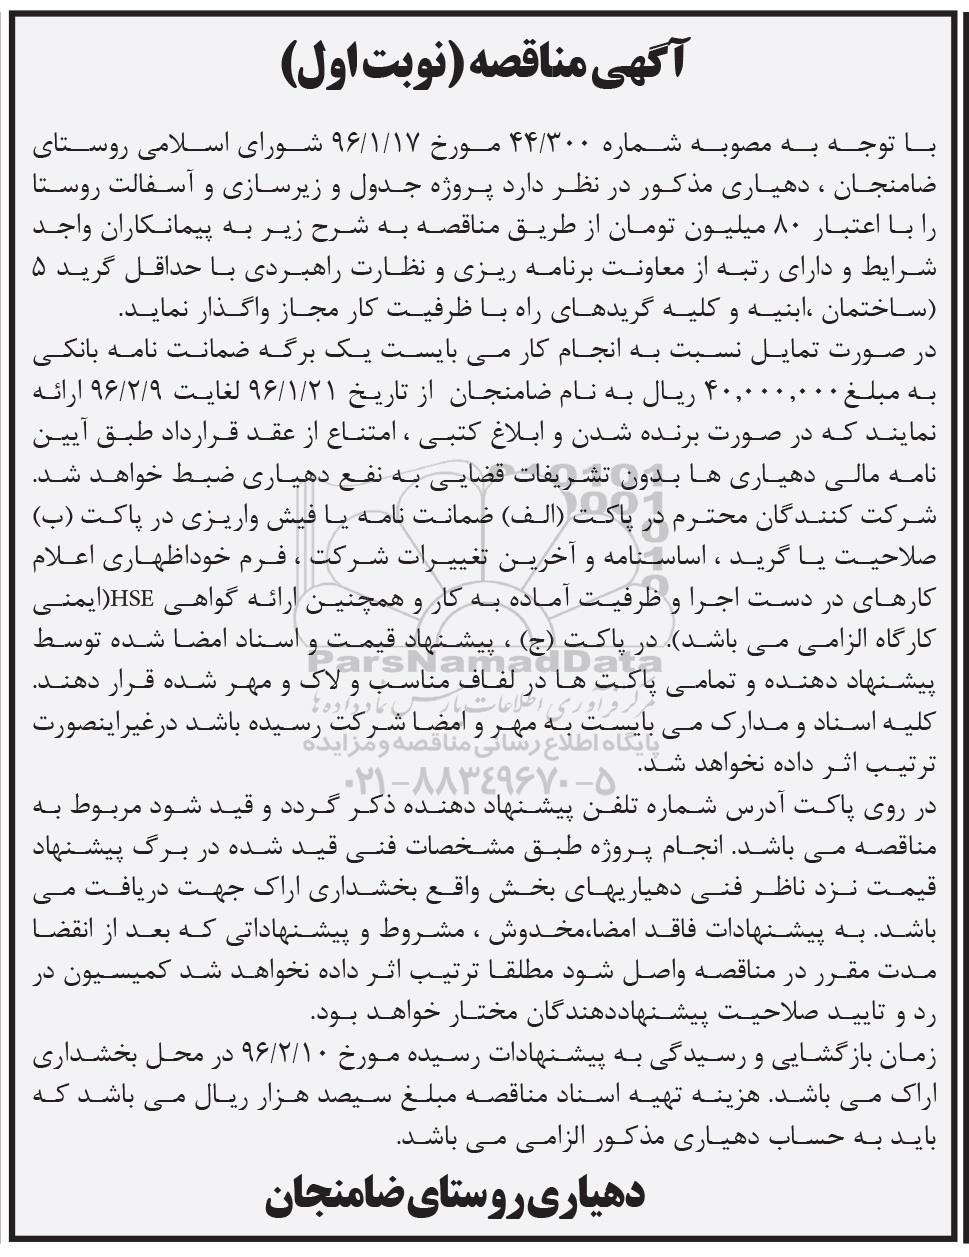 آگهی مناقصه (نوبت اول)
با توجه به مصوبه شماره ۴۴/۳۰۰ مورخ ۹۶/۱/۱۷ شورای اسلامی روستای
ضامنجان ، دهیاری مذکور در نظر دارد پروژه جدول و زیرسازی و آسفالت روستا
را با اعتبار ۸۰ میلیون تومان از طریق مناقصه به شرح زیر به پیمانکاران واجد
شرایط و دارای رتبه از معاونت برنامه ریزی و نظارت راهبردی با حداقل گرید ۵
(ساختمان ،ابنیه و کلیه گریدهای راه با ظرفیت کار مجاز واگذار نماید.
در صورت تمایل نسبت به انجام کار می بایست یک برگه ضمانت نامه بانکی
به مبلغ۴۰,۰۰۰,۰۰۰ ریال به نام ضامنجان از تاریخ ۹۶/۱/۲۱ لغایت ۹۶/۲/۹ ارائه
نمایند که در صورت برنده شدن و ابلاغ کتبی ، امتناع از عقد قرارداد طبق آیین
نامه مالی دهیاری ها بدون تشریفات قضایی به نفع دهیاری ضبط خواهد شد.
شرکت کنندگان محترم در پاکت (الف) ضمانت نامه یا فیش واریزی در پاکت (ب)
صلاحیت یا گرید ، اساسنامه و آخرین تغییرات شرکت ، فرم خوداظهاری اعلام
کارهای در دست اجرا و ظرفیت آماده به کار و همچنین ارائه گواهی HSE(ایمنی
کارگاه الزامی می باشد). در پاکت (ج) ، پیشنهاد قیمت و اسناد امضا شده توسط
ParsNamadData
پیشنهاد دهنده و تمامی پاکت ها در لفاف مناسب و لاک و مهر شده قرار دهند.
مرکز فرآوری اطلاعات پارس نماد داده ها
کلیه اسناد و مدارک می بایست به مهر و امضا شرکت رسیده باشد درغیراینصورت
پایگاه اطلاع رسانی مناقصه و مزایده
ترتیب اثر داده نخواهد شد.
۰۲۱-۸۸۳۴۹۶۷۰-۵
در روی پاکت آدرس شماره تلفن پیشنهاد دهنده ذکر گردد و قید شود مربوط به
مناقصه می باشد. انجام پروژه طبق مشخصات فنی قید شده در برگ پیشنهاد
قیمت نزد ناظر فنی دهیاریهای بخش واقع بخشداری اراک جهت دریافت می
باشد. به پیشنهادات فاقد امضا،مخدوش ، مشروط و پیشنهاداتی که بعد از انقضا
مدت مقرر در مناقصه واصل شود مطلقا ترتیب اثر داده نخواهد شد کمیسیون در
رد و تایید صلاحیت پیشنهاددهندگان مختار خواهد بود.
زمان بازگشایی و رسیدگی به پیشنهادات رسیده مورخ ۹۶/۲/۱۰ در محل بخشداری
اراک می باشد. هزینه تهیه اسناد مناقصه مبلغ سیصد هزار ریال می باشد که
باید به حساب دهیاری مذکور الزامی می باشد.
دهیاری روستای ضامنجان